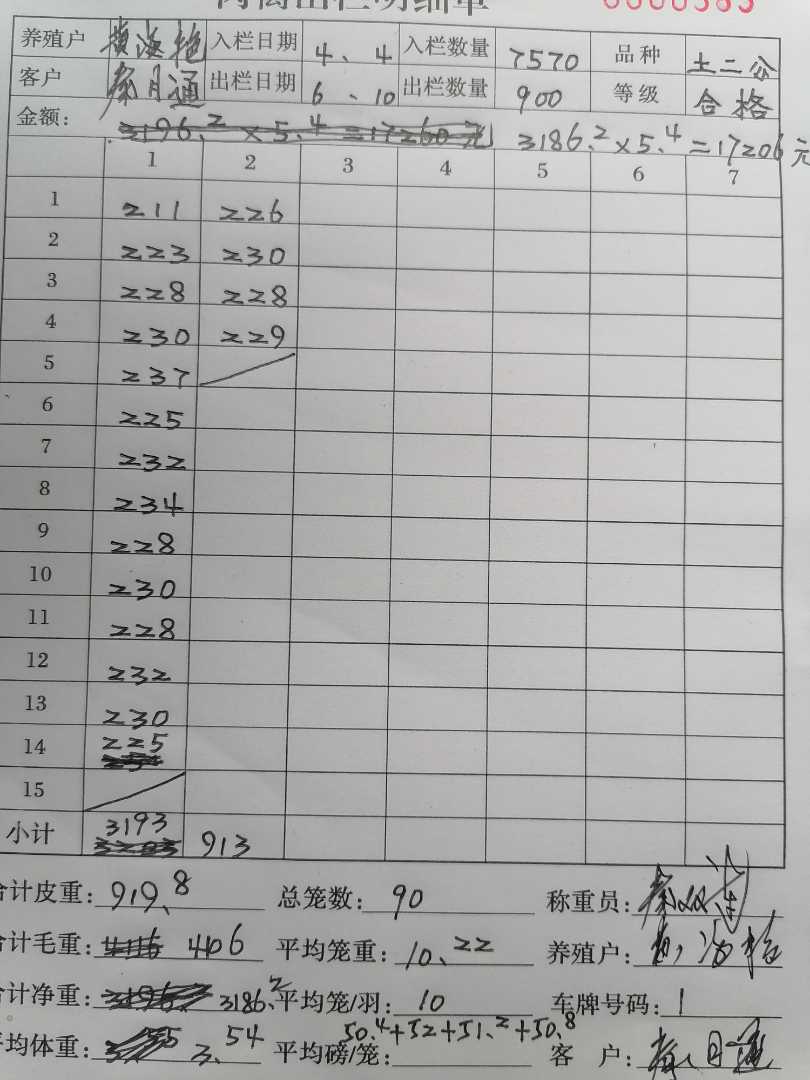 肉禽出栏明细单 0000383
养殖户 黄海艳 入栏日期 4、4 入栏数量 7570 品种 土二公
客户 秦月通 出栏日期 6、10 出栏数量 900 等级 合格
金额: 3196.2×5.4=17260元 3186.2×5.4=17206元
1 2 3 4 5 6 7
1 211 226
2 223 230
3 228 228
4 230 229
5 237
6 225
7 232
8 234
9 228
10 230
11 228
12 232
13 230
14 225
15
小计 3193 913
合计皮重: 919.8 总笼数: 90 称重员:
合计毛重: 4106 平均笼重: 10.22 养殖户:
合计净重: 3186.2 平均笼/羽: 10 车牌号码: 1
平均体重: 3.54 平均磅/笼: 50.4+52+51.2+50.8 客 户: 秦月通